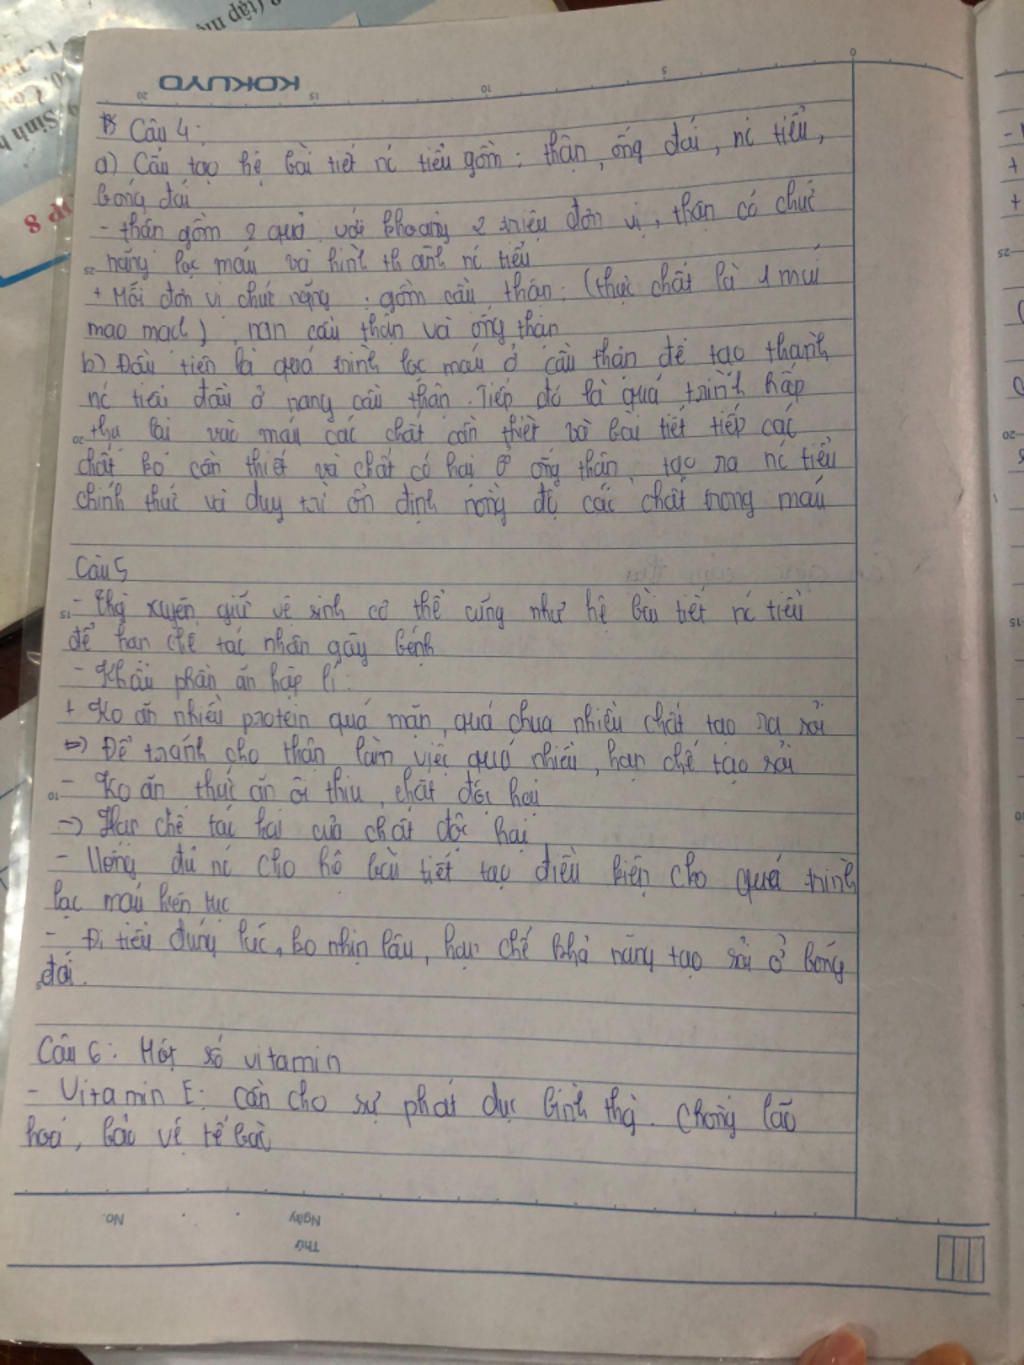 KOKUYO
Câu 4:
a) Cấu tạo hệ bài tiết nc tiểu gồm: thận, ống đái, nc tiểu,
bóng đái
- thận gồm 2 quả với khoảng 2 triệu đơn vị, thận có chức
năng lọc máu và hình thành nc tiểu
+ Mỗi đơn vị chức năng: gồm cầu thận: (thực chất là 1 mui
mao mạch), nan cầu thận và ống thận
b) Đầu tiên là quá trình lọc máu ở cầu thận để tạo thành
nc tiểu đầu ở nang cầu thận. Tiếp đó là quá trình hấp
thụ lại vào máu các chất cần thiết và bài tiết tiếp các
chất ko cần thiết và chất có hại ở ống thận tạo ra nc tiểu
chính thức và duy trì ổn định nồng độ các chất trong máu
Câu 5
- thg xuyên giữ vệ sinh cơ thể cũng như hệ bài tiết nc tiểu
để hạn chế tác nhân gây bệnh
- Khẩu phần ăn hợp lí
+ Ko ăn nhiều protein quá mặn, quá chua nhiều chất tạo ra sỏi
=> Để tránh cho thận làm việc quá nhiều, hạn chế tạo sỏi
- Ko ăn thức ăn ôi thiu, chất độc hại
-> Hạn chế tác hại của chất độc hại
- Uống đủ nc cho hệ bài tiết tạo điều kiện cho quá trình
lọc máu liên tục
- Đi tiểu đúng lúc, ko nhịn lâu, hạn chế khả năng tạo sỏi ở bóng
đái.
Câu 6: Một số vitamin
- Vitamin E: cần cho sự phát dục bình thg. Chống lão
hoá, bảo vệ tế bào
No.
Ngày
Thứ